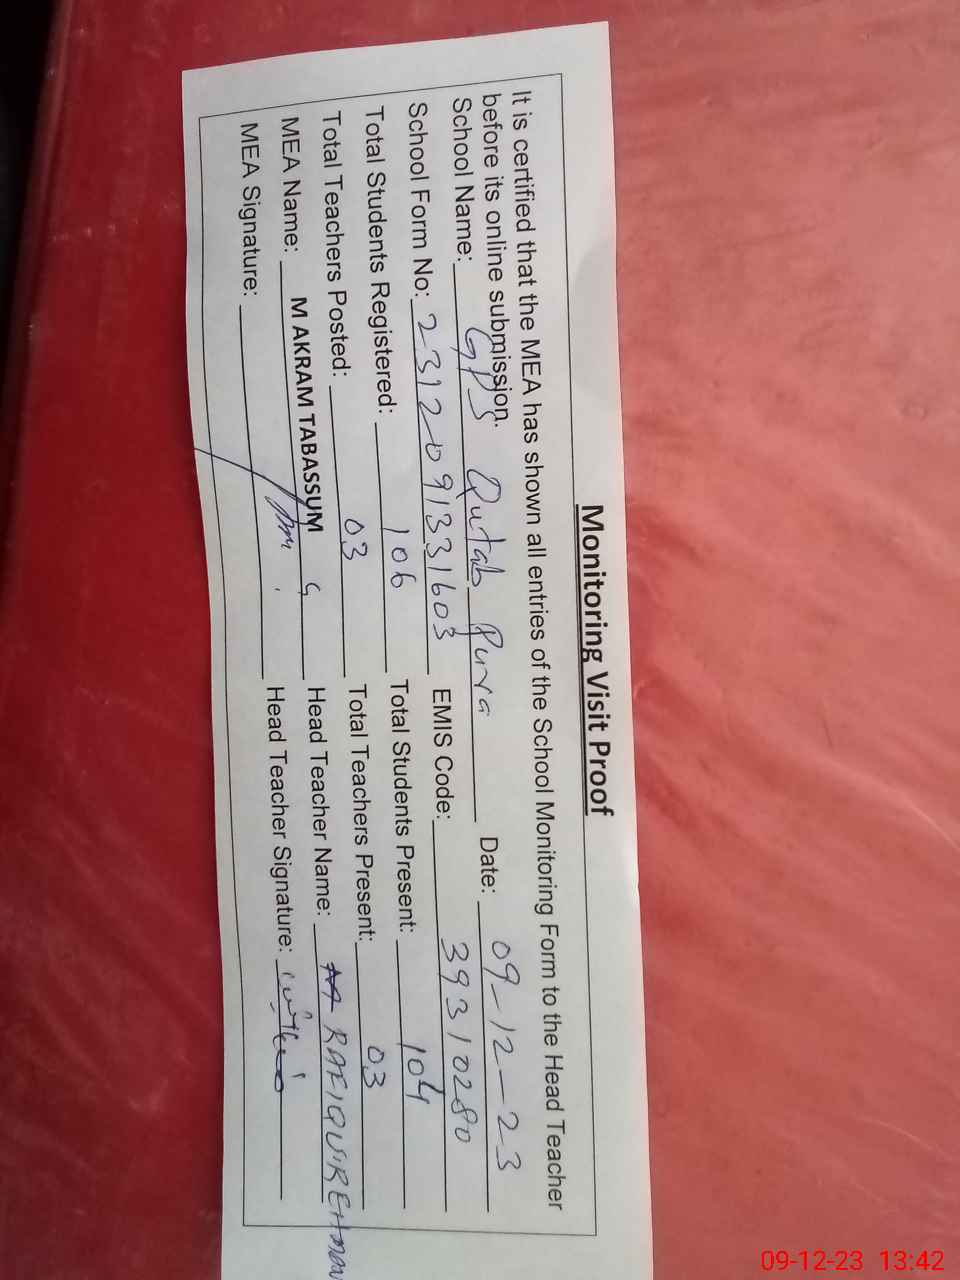 Monitoring Visit Proof
It is certified that the MEA has shown all entries of the School Monitoring Form to the Head Teacher
before its online submission.
School Name: GPS Qutab Pura Date: 09-12-23
School Form No: 2312091331603 EMIS Code: 39310280
Total Students Registered: 106 Total Students Present: 104
Total Teachers Posted: 03 Total Teachers Present: 03
MEA Name: M AKRAM TABASSUM Head Teacher Name: RAFIQUIREHMAN
MEA Signature: Head Teacher Signature:
09-12-23 13:42